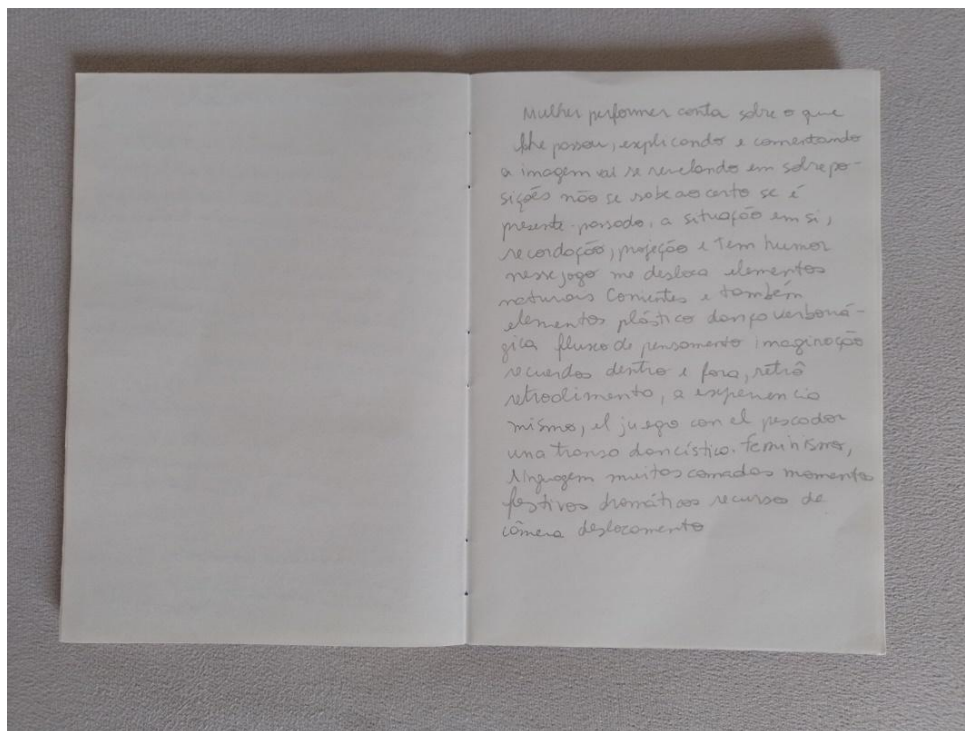 Mulher performer conta sobre o que
lhe passou, explicando e comentando
a imagem vai se revelando em sobrepo-
sições não se sabe ao certo se é
presente passado, a situação em si,
recordação, projeção e tem humor
nesse jogo me desloca elementos
naturais correntes e também
elementos plástico dança verborrá-
gica fluxo de pensamento imaginação
recuerdos dentro e fora, retrô
a experiencia
mismo, el juego con el pescador
una transa dancística. feminismo,
linguagem muitas camadas momentos
festivos dramáticos recursos de
câmera deslocamento